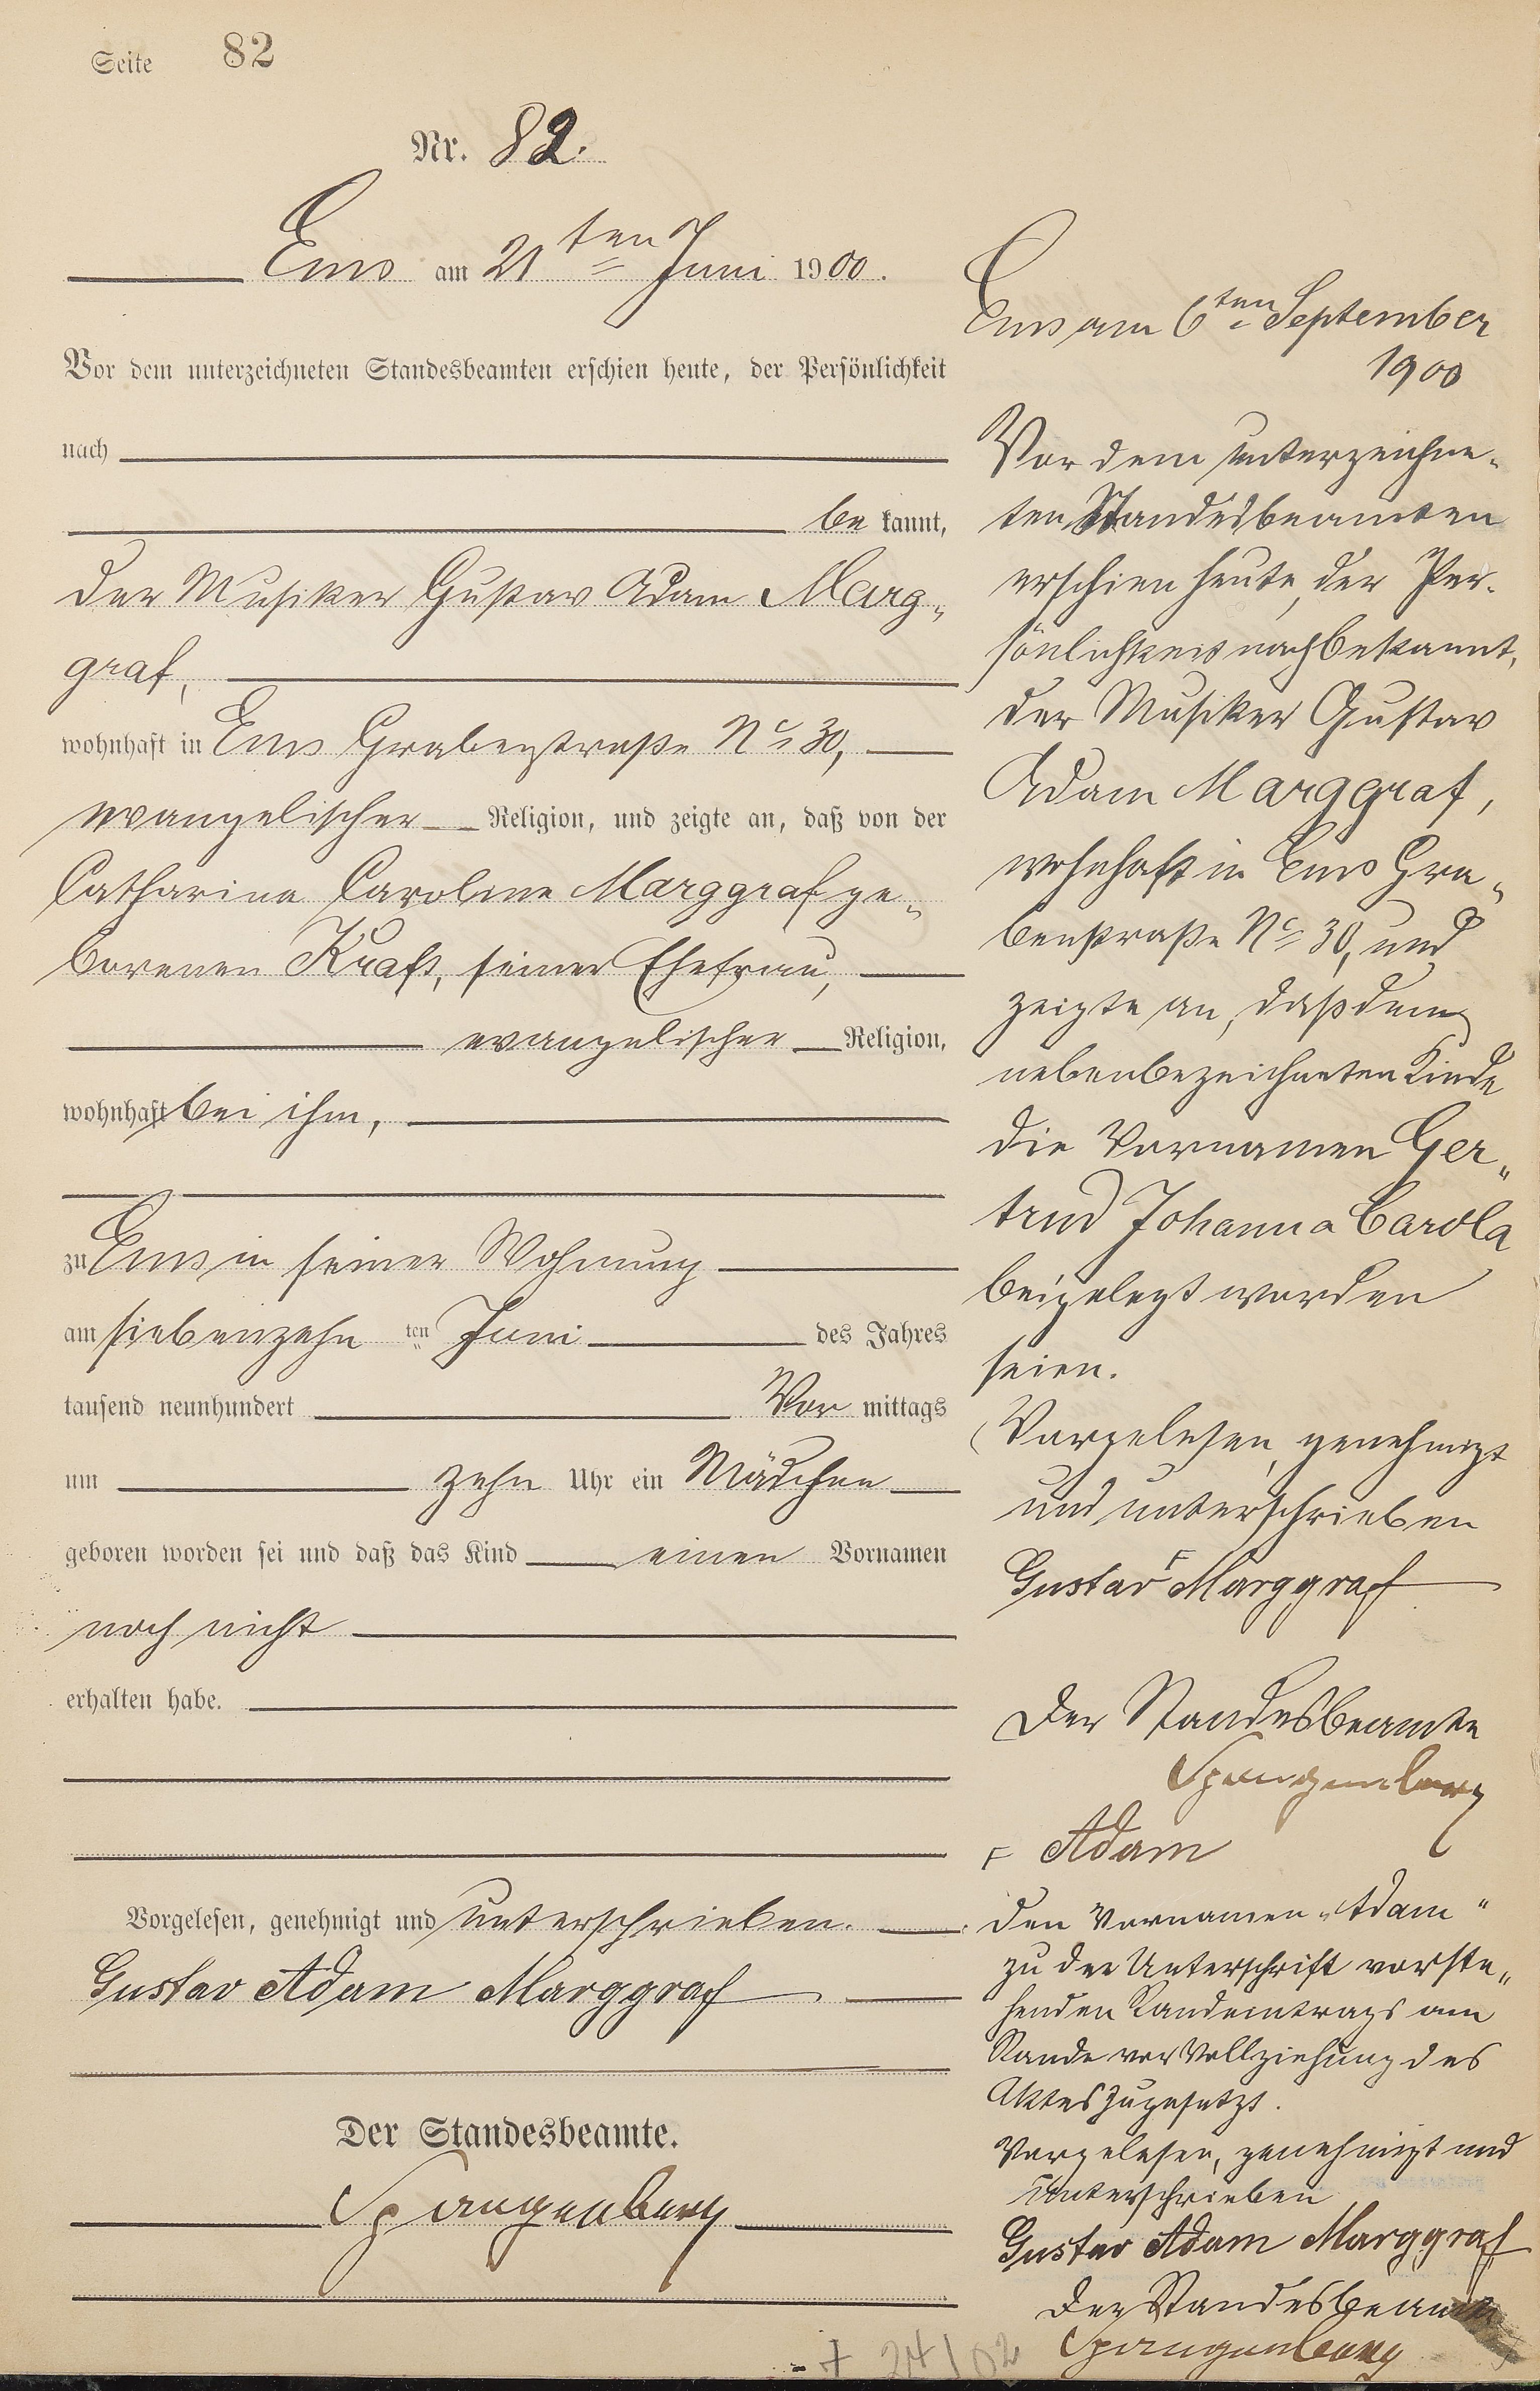 Seite 82
Nr. 82.
Ems am 21ten Juni 1900.
Vor dem unterzeichneten Standesbeamten erschien heute, der Persönlichkeit
nach
be kannt,
der Musiker Gustav Adam Marg„
graf,
wohnhaft in Ems Grabenstraße No 30,
evangelischer Religion, und zeigte an, daß von der
Catharina Caroline Marggraf ge„
borenen Kraft, seiner Ehefrau,
evangelischer Religion,
wohnhaft bei ihm,
zu Ems in seiner Wohnung
am siebenzehn ten Juni des Jahres
tausend neunhundert Vor mittags
um zehn Uhr ein Mädchen
geboren worden sei und daß das Kind einen Vornamen
noch nicht
erhalten habe.
Vorgelesen, genehmigt und unterschrieben.
Gustav Adam Marggraf
Der Standesbeamte.
Spangenberg
Ems am 6ten September
1900
Vor dem unterzeichne„
ten Standesbeamten
erschien heute, der Per„
sönlichkeit nach bekannt,
der Musiker Gustav
Adam Marggraf,
wohnhaft in Ems Gra„
benstraße No 30, und
zeigte an, daß dem
nebenbezeichneten Kinde
die Vornamen Ger„
trud Johanna Carola
beigelegt worden
seien.
Vorgelesen, genehmigt
und unterschrieben
Gustav F Marggraf
Der Standesbeamte
Spangenberg
F Adam
Den Vornamen „Adam"
zu der Unterschrift vorste„
henden Randeintrags am
Rande vor Vollziehung des
Aktes zugesetzt.
Vorgelesen, genehmigt und
unterschrieben
Gustav Adam Marggraf
Der Standesbeamte
Spangenberg
+ 24/02